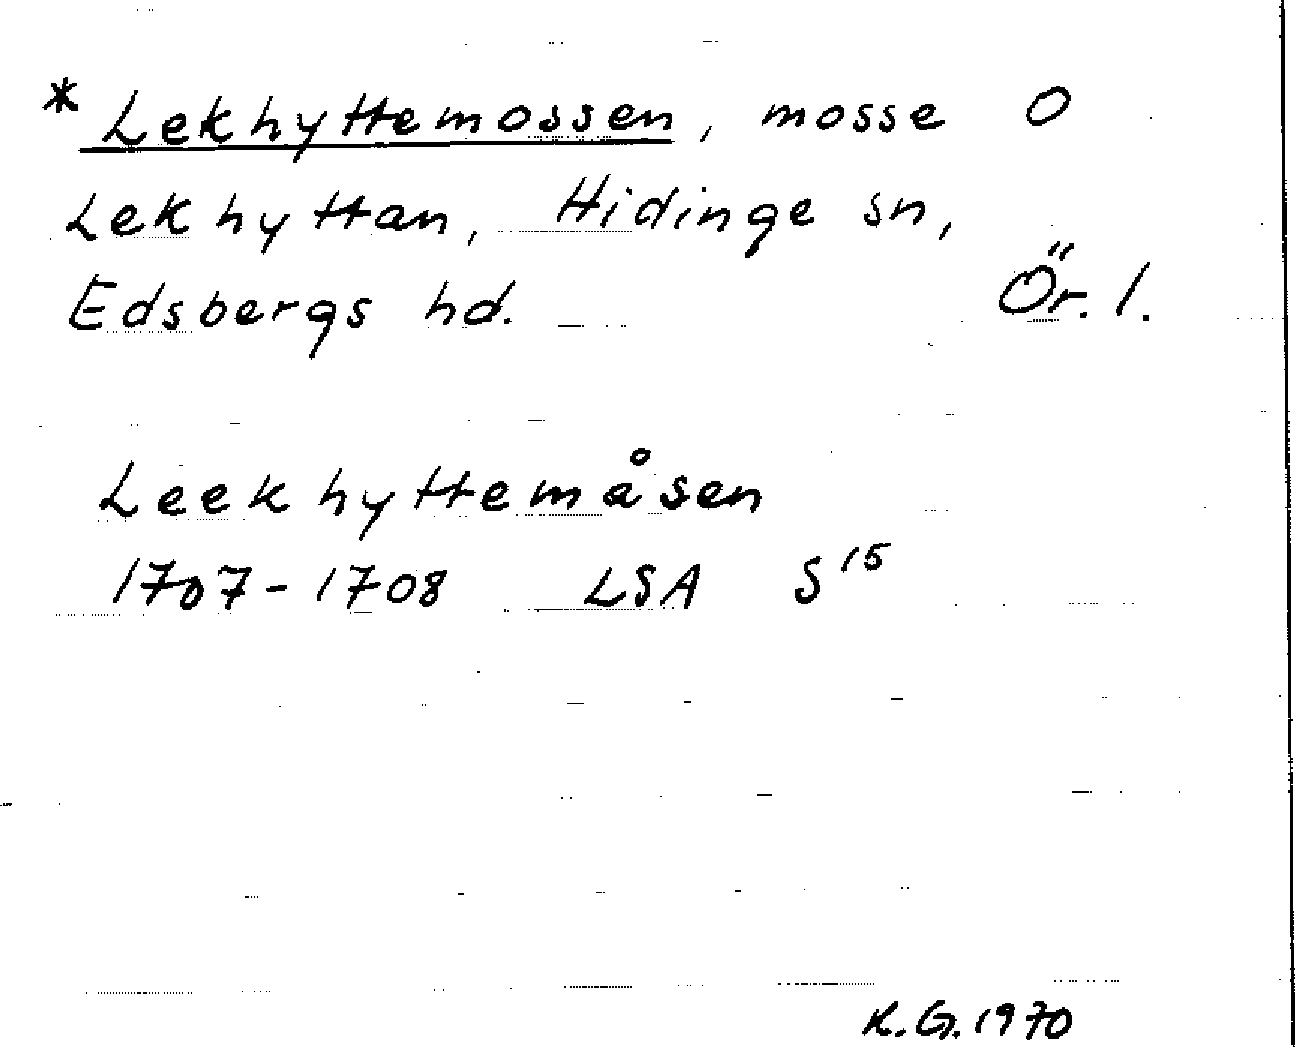 * Lekhyttemossen, mosse O
Lekhyttan, Hidinge sn,
Edsbergs hd. Ör. l.
Leekhyttemåsen
1707-1708 LSA S 15
K.G. 1970